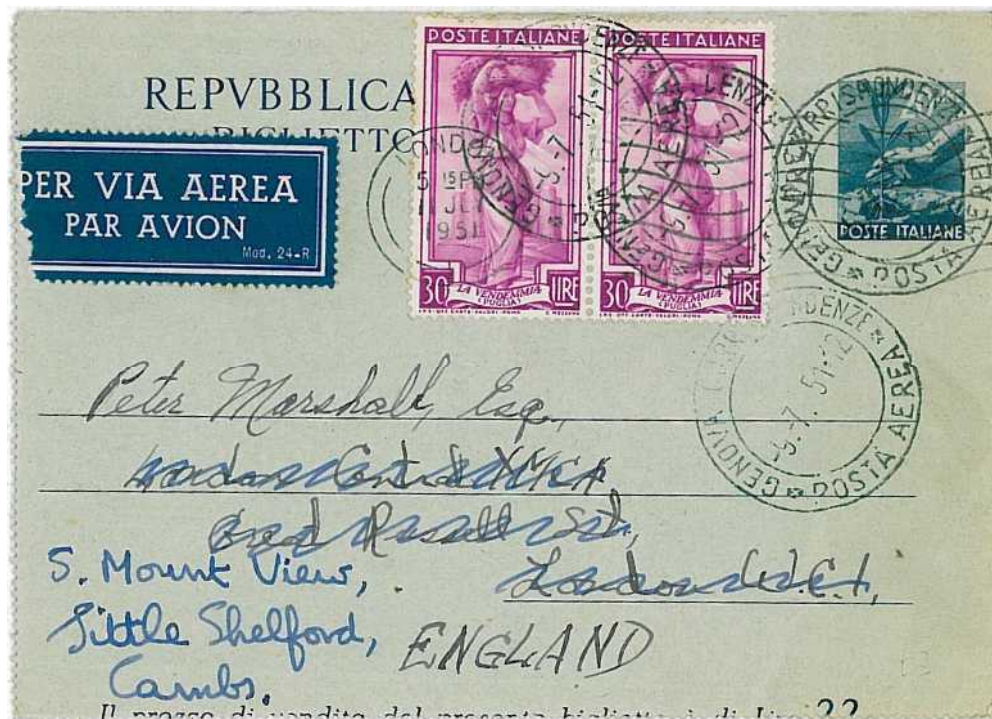 REPVBBLICA
BIGLIETTO
PER VIA AEREA
PAR AVION
Mod. 24-R
POSTE ITALIANE
30 LA VENDEMMIA LIRE
(PUGLIA)
POSTE ITALIANE
30 LA VENDEMMIA LIRE
(PUGLIA)
POSTE ITALIANE
LONDON
5 15 PM
JLY
1951
GENOVA CORRISPONDENZE
POSTA AEREA
-5.-7.51-12
Peter Marshall, Esq.,
London Central YMCA
Great Russell St.,
London W.C.1,
5. Mount View,
Little Shelford,
Cambs.
ENGLAND
Il prezzo di vendita del presente biglietto è di Lire 22